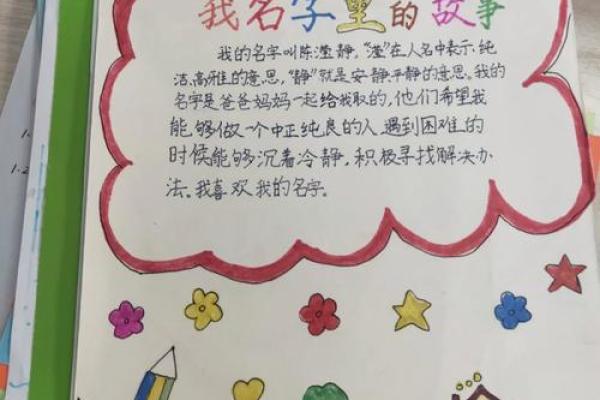 我名字里的故事
我的名字叫陈滢静，"滢"在人名中表示纯
洁、高雅的意思，"静"就是安静平静的意思。我的
名字是爸爸妈妈一起给我取的，他们希望我
能够做一个中正纯良的人，遇到困难的
时候能够沉着冷静，积极寻找解决办
法。我喜欢我的名字。